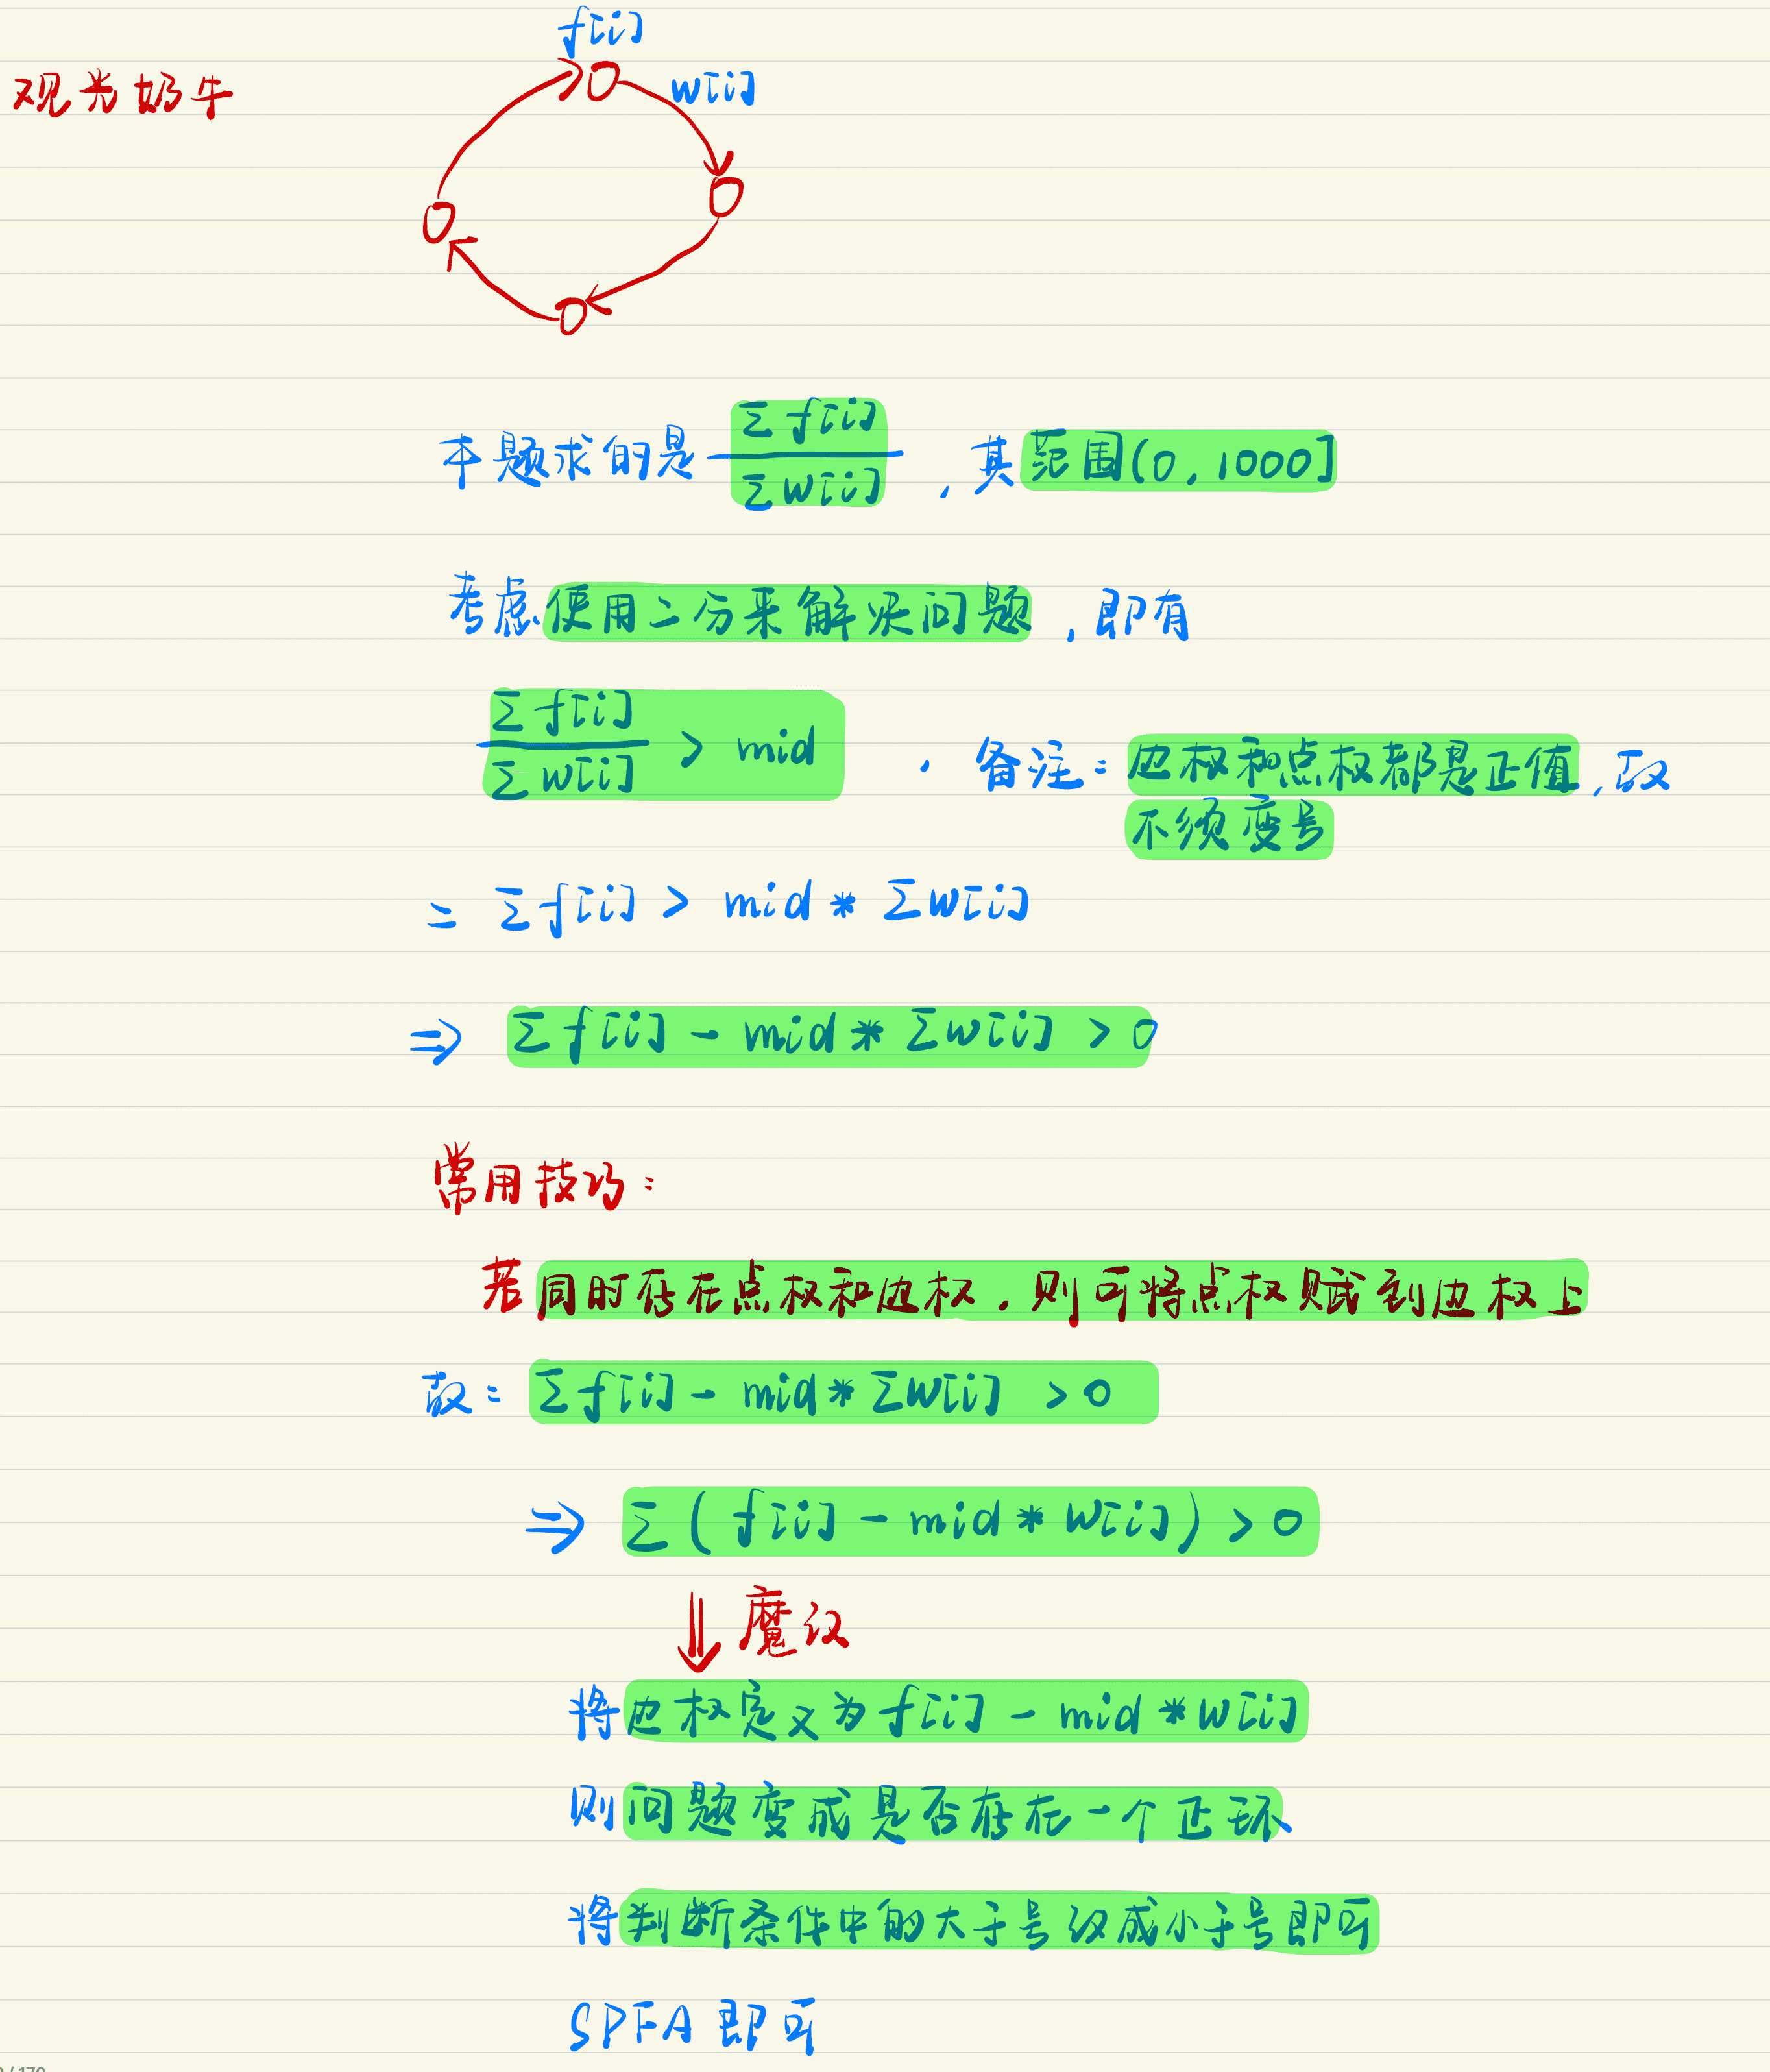 f[i]
观光奶牛
w[i]
本题求的是 Σf[i] / Σw[i] ，其范围(0, 1000]
考虑使用二分来解决问题，即有
Σf[i] / Σw[i] > mid ，备注：边权和点权都是正值，故
不须变号
= Σf[i] > mid * Σw[i]
⇒ Σf[i] - mid * Σw[i] > 0
常用技巧：
若同时存在点权和边权，则可将点权赋到边权上
故：Σf[i] - mid * Σw[i] > 0
⇒ Σ(f[i] - mid * w[i]) > 0
⇓ 魔改
将边权定义为f[i] - mid * w[i]
则问题变成是否存在一个正环
将判断条件中的大于号改成小于号即可
SPFA即可
/ 179